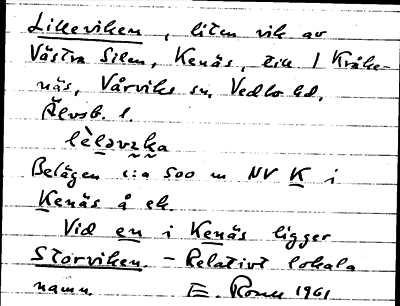 Lilleviken, liten vik av
Västra Silen, Kenäs, till 1 Kråke-
näs, Vårviks sn, Vedbo hd,
Älvsb. l.
Belägen c:a 500 m NV K i
Kenäs å ek.
Vid en i Kenäs ligger
Storviken. - Relativt lokala
namn. E. Rosell 1961